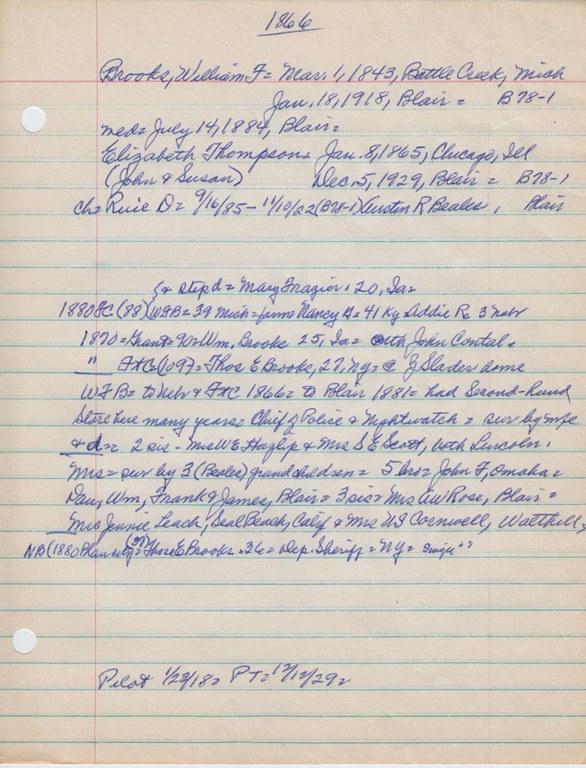 1866
Brooks, William F = Mar. 1, 1843, Battle Creek, Mich
Jan. 18, 1918, Blair = B78-1
med = July 14, 1884, Blair =
Elizabeth Thompson = Jan. 8, 1865, Chicago, Ill
(John & Susan) Dec. 5, 1929, Blair = B78-1
ch = Ruie D = 9/16/85 - 11/10/22 (B78-1) Austin R Beales, Blair
& step d = Mary Frazier, 20, Ia =
1880 FC (88) WFB = 39 Mich = farms Nancy A = 41 Ky = Addie R = 3 Nebr
1870 = Grant = 90 = Wm. Brooks 25, Ia = with John Contal =
" FtC (109) = Thos E Brooks, 27, NY = @ J Slader home
WFB = to Nebr & FtC 1866 = to Blair 1881 = had Second-Hand
Store here many years = Chief of Police & Nightwatch = sur by wife
& d = 2 sis - Mrs W E Hazlip & Mrs S E Scott, both Lincoln.
Mrs = sur by 3 (Beales) grandchildren = 5 bros = John F, Omaha =
Dan, Wm, Frank & James, Blair = 3 sis = Mrs AW Rose, Blair =
Mrs Jennie Leach, Seal Beach, Calif & Mrs US Cornwell, Walthill,
NB (1880 Blair city (37) = Thos E Brooks = 36 = Dep. Sheriff = NY = single "
Pilot 1/23/18 = PT = 12/12/29 =